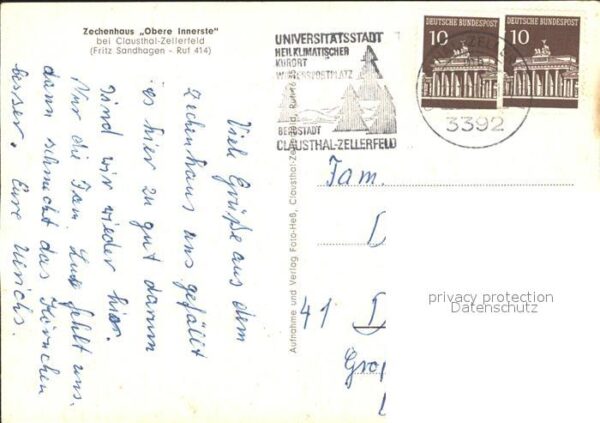 Zechenhaus „Obere Innerste"
bei Clausthal-Zellerfeld
(Fritz Sandhagen - Ruf 414)
Viele Grüße aus dem
Zechenhaus uns gefällt
es hier zu gut darum
sind wir wieder hier.
Nur die Fam. fehlt uns.
dann schmeckt das Körnchen
besser. Eure Ulrichs.
Aufnahme und Verlag Foto-Heß, Clausthal-Zellerfeld, Ruf
UNIVERSITÄTSSTADT
HEILKLIMATISCHER
KURORT
WINTERSPORTPLATZ
BERGSTADT
CLAUSTHAL-ZELLERFELD
DEUTSCHE BUNDESPOST
10
DEUTSCHE BUNDESPOST
10
ZELLER
3392
Fam.
41
privacy protection
Datenschutz